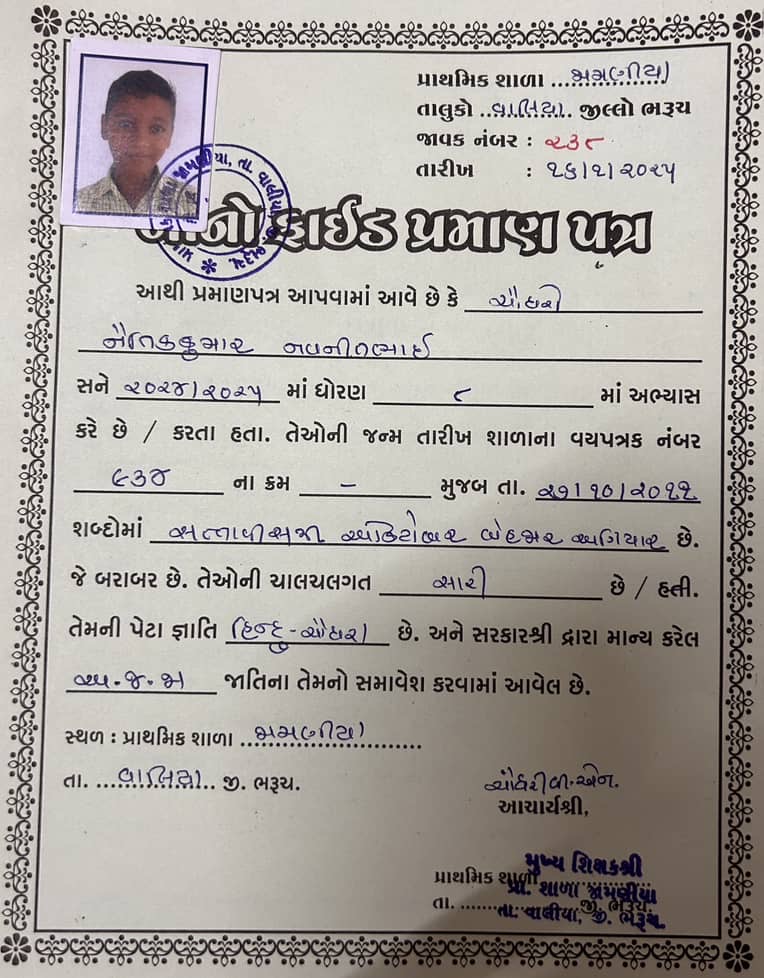 પ્રાથમિક શાળા જામણીયા
તાલુકો વાલિયા. જીલ્લો ભરૂચ
જાવક નંબર : ૨૩૮
તારીખ : ૧૬/૧/૨૦૨૫
બોનોફાઈડ પ્રમાણ પત્ર
આથી પ્રમાણપત્ર આપવામાં આવે છે કે ચૌધરી
નૈતિકકુમાર નવનીતભાઈ
સને ૨૦૨૪/૨૦૨૫ માં ધોરણ ૮ માં અભ્યાસ
કરે છે / કરતા હતા. તેઓની જન્મ તારીખ શાળાના વયપત્રક નંબર
૯૩૪ ના ક્રમ - મુજબ તા. ૨૭/૧૦/૨૦૧૧
શબ્દોમાં સત્તાવીસમી ઓકટોબર બેહજાર અગિયાર છે.
જે બરાબર છે. તેઓની ચાલચલગત સારી છે / હતી.
તેમની પેટા જ્ઞાતિ હિન્દુ-ચૌધરી છે. અને સરકારશ્રી દ્વારા માન્ય કરેલ
અ.જ.જા જાતિના તેમનો સમાવેશ કરવામાં આવેલ છે.
સ્થળ : પ્રાથમિક શાળા જામણીયા
તા. વાલિયા. જી. ભરૂચ.
ચૌધરી વી.એન.
આચાર્યશ્રી,
મુખ્ય શિક્ષકશ્રી
પ્રાથમિક શાળા
પ્રા. શાળા જામણીયા
તા. જી. ભરૂચ
તા. વાલીયા, જી. ભરૂચ.